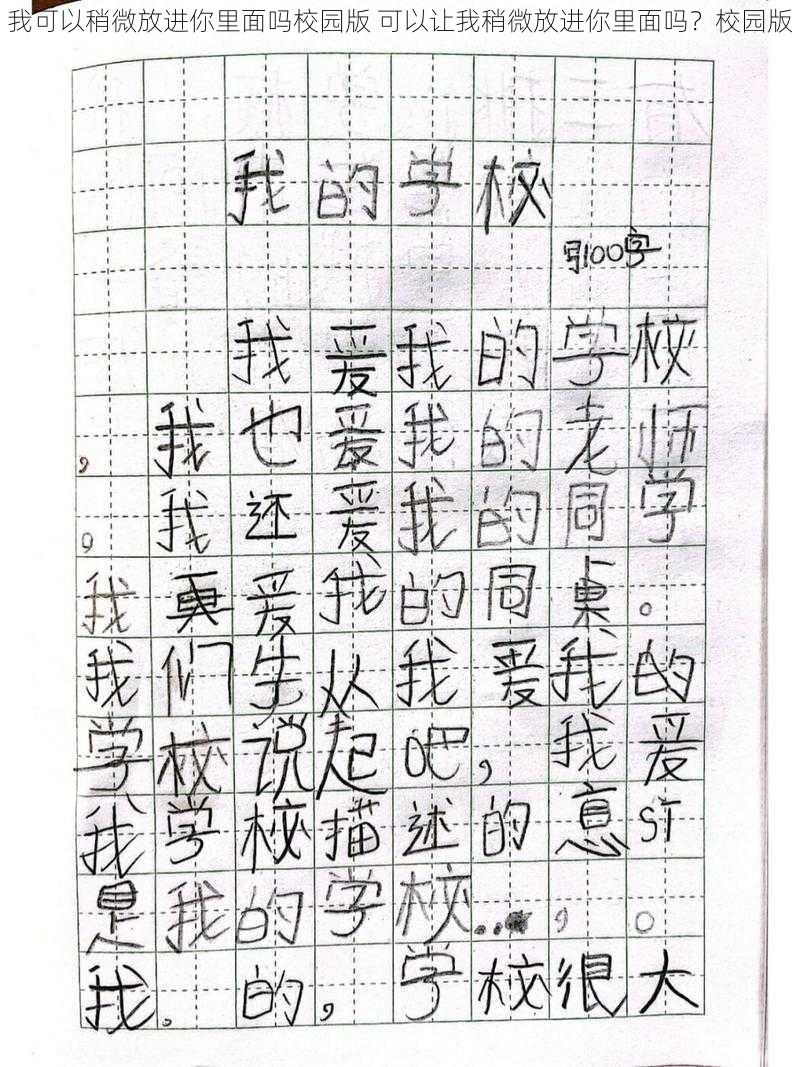 我可以稍微放进你里面吗校园版 可以让我稍微放进你里面吗？校园版
我的学校
引100字
我爱我的学校
，我也爱我的老师
。我还爱我的同学
我更爱我的同桌。
我们先从我爱我的
学校说起吧，我爱
我学校描述的意ST
是我的学校...，。
我.的，学校很大